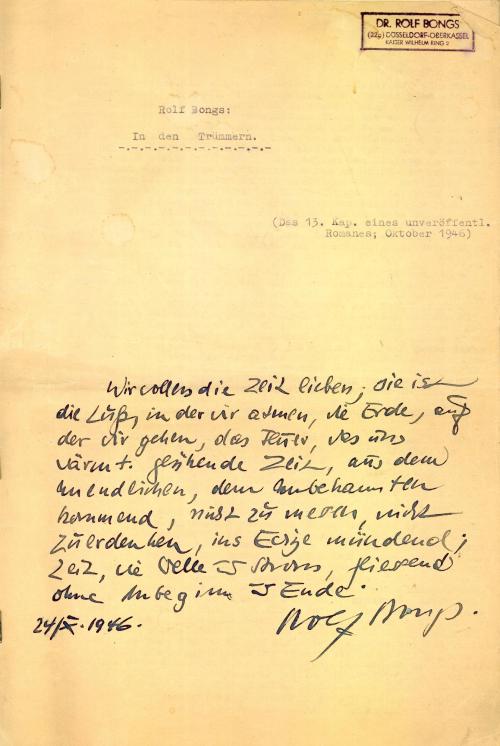 DR. ROLF BONGS
(22a) DÜSSELDORF-OBERKASSEL
KAISER WILHELM RING 2
Rolf Bongs:
In den Trümmern.
-.-.-.-.-.-.-.-.-.-.-.-
(Das 13. Kap. eines unveröffentl.
Romanes; Oktober 1946)
Wir wollen die Zeit lieben; sie ist
die Luft, in der wir atmen, die Erde, auf
der wir gehen, das Feuer, das uns
wärmt. glühende Zeit, aus dem
Unendlichen, dem Unbekannten
kommend, nicht zu messen, nicht
zu erdenken, ins Ewige mündend;
Zeit, die Welle Strom, fliessend
ohne Unbeginn Ende.
24/X. 1946.
Rolf Bongs.